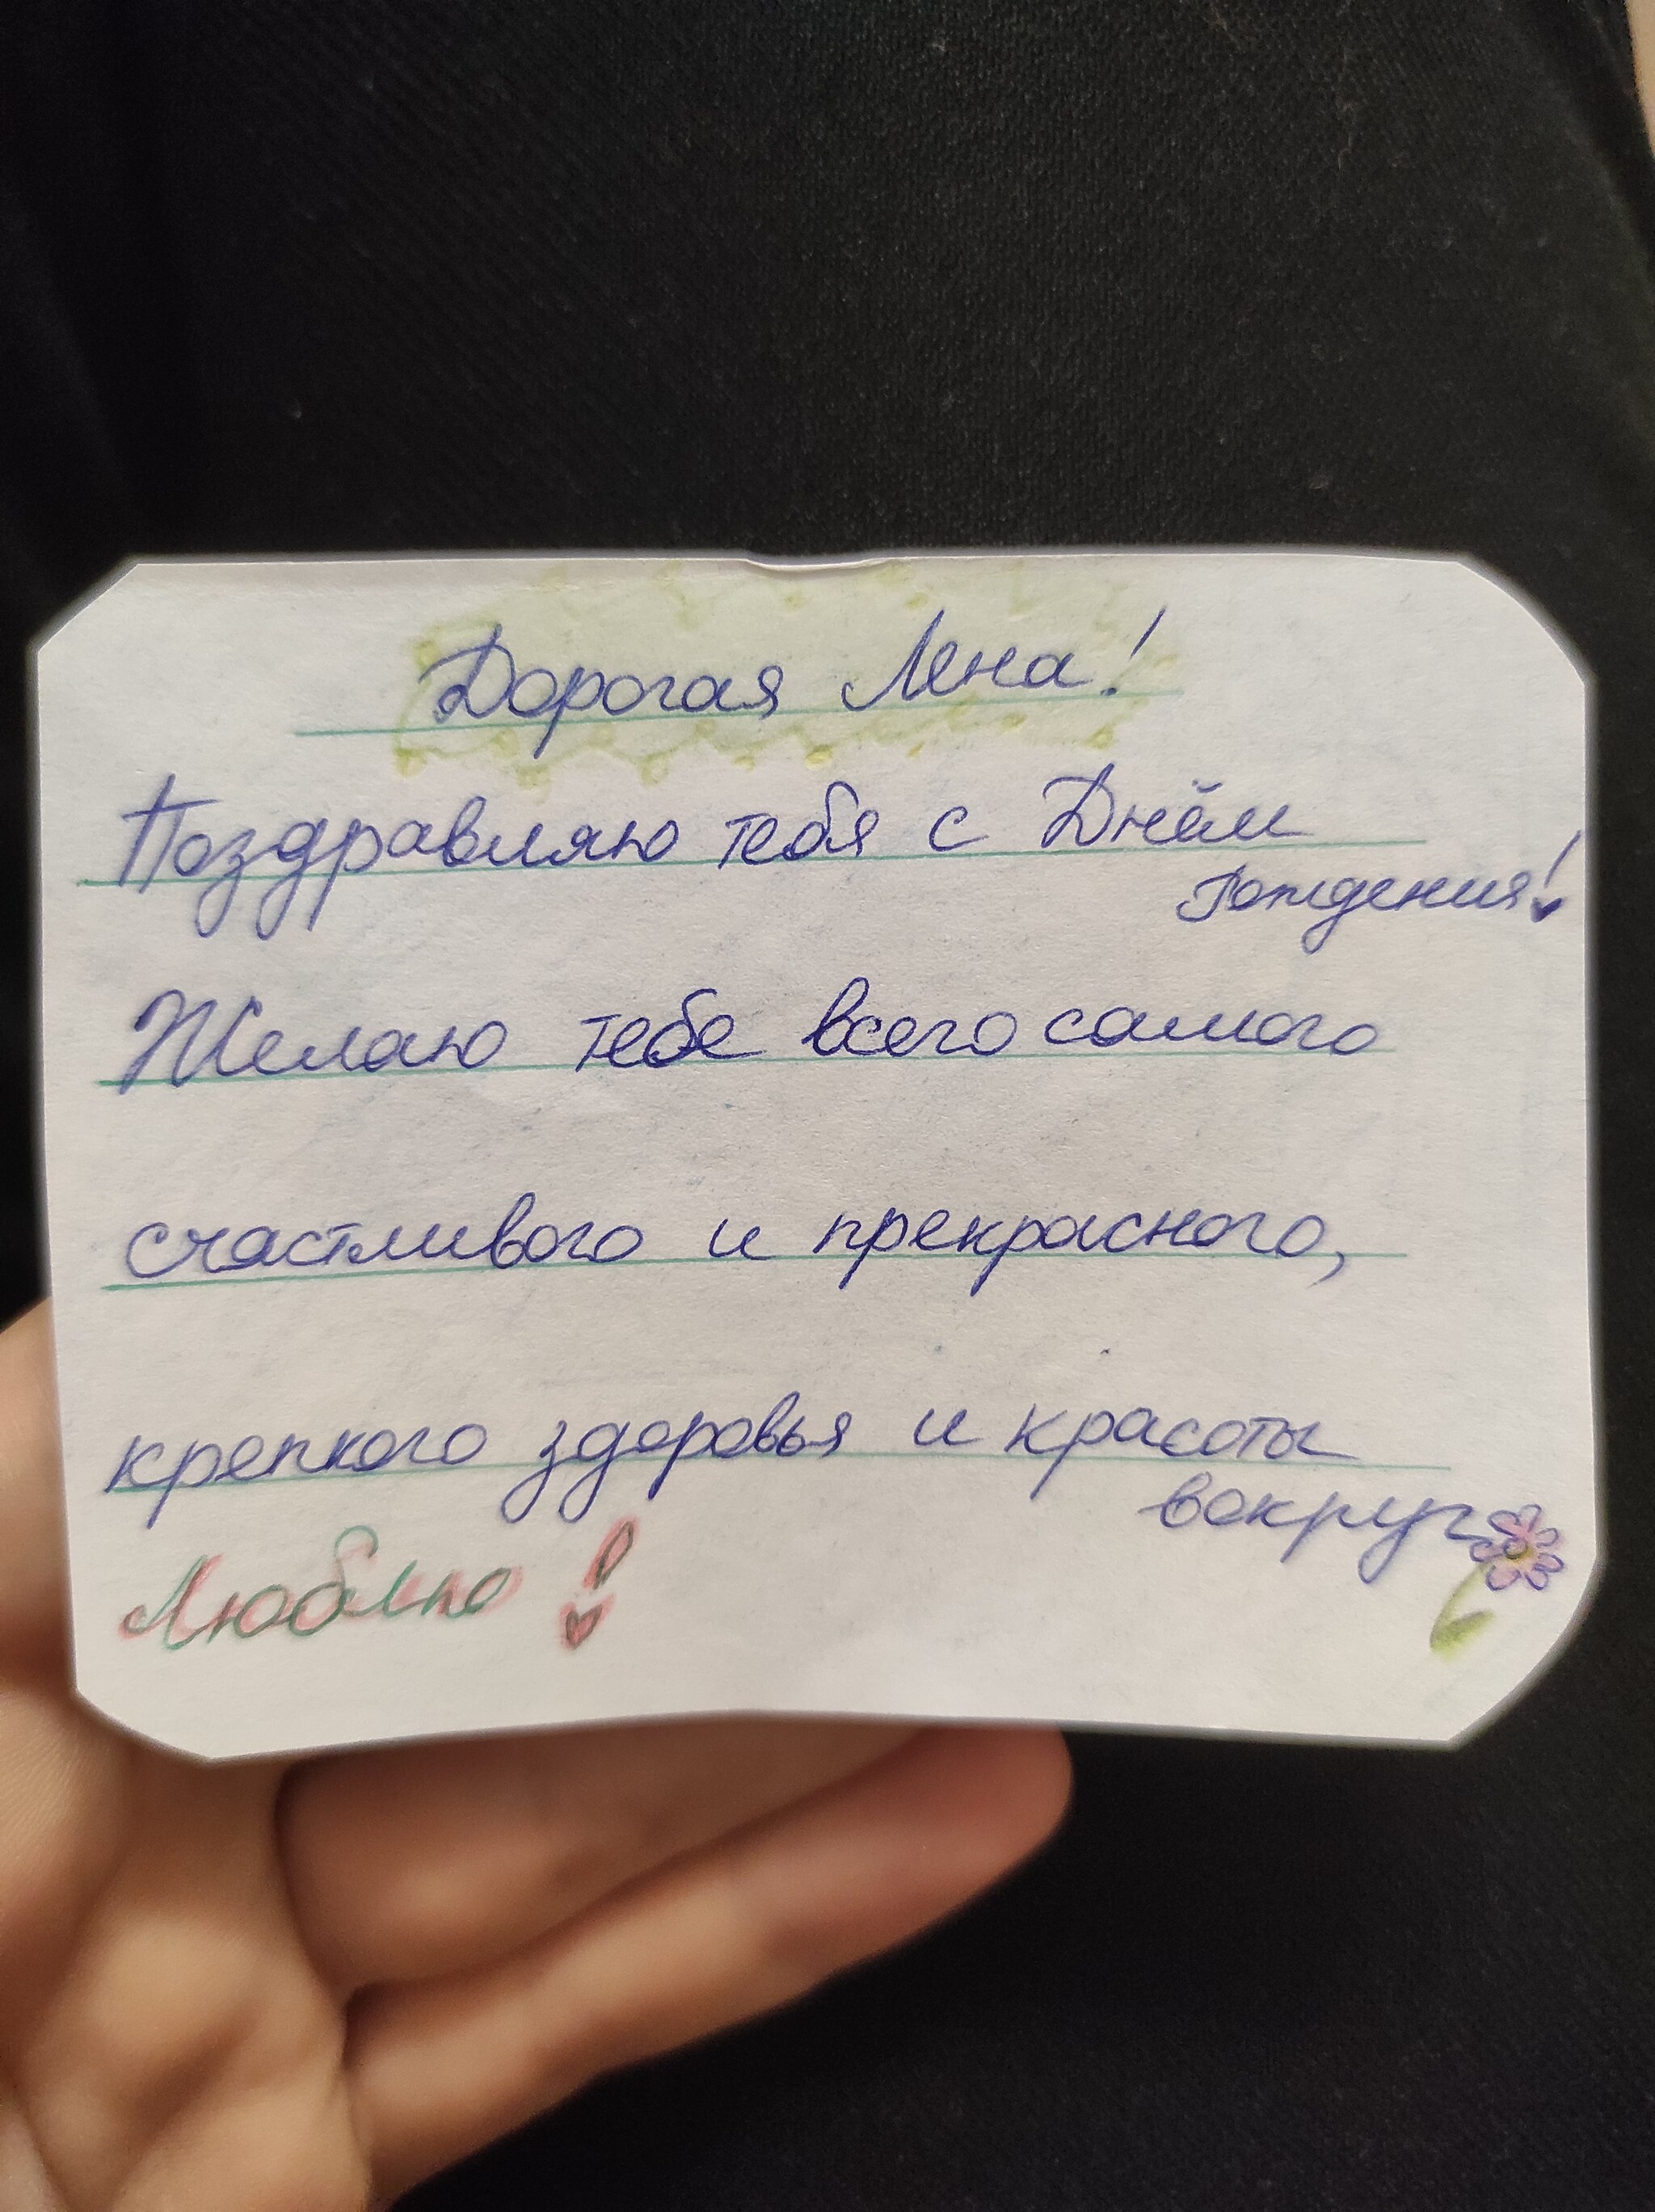 Дорогая Лена!
Поздравляю тебя с Днём
рождения!
Желаю тебе всего самого
счастливого и прекрасного,
крепкого здоровья и красоты
вокруг
Люблю!